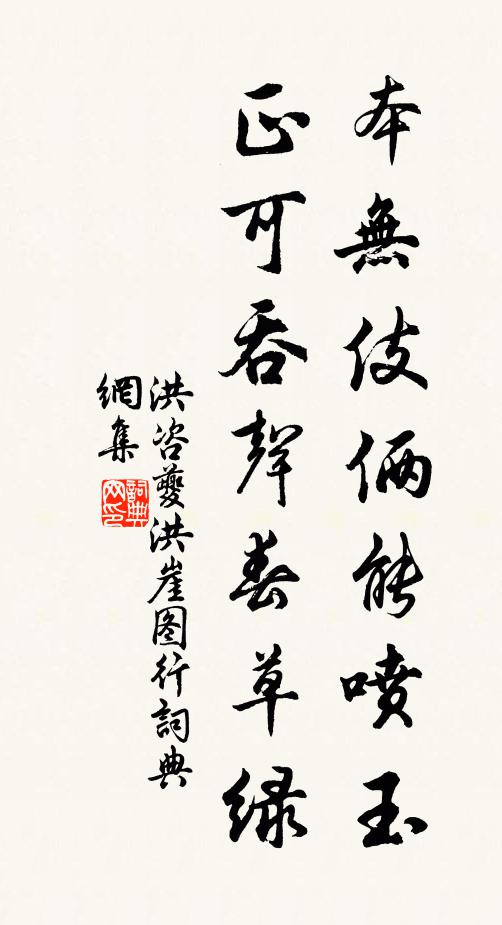 本無伎倆能噴玉
正可吞聲春草綠
洪咨夔洪崖图行詞典
網集
詞典網印